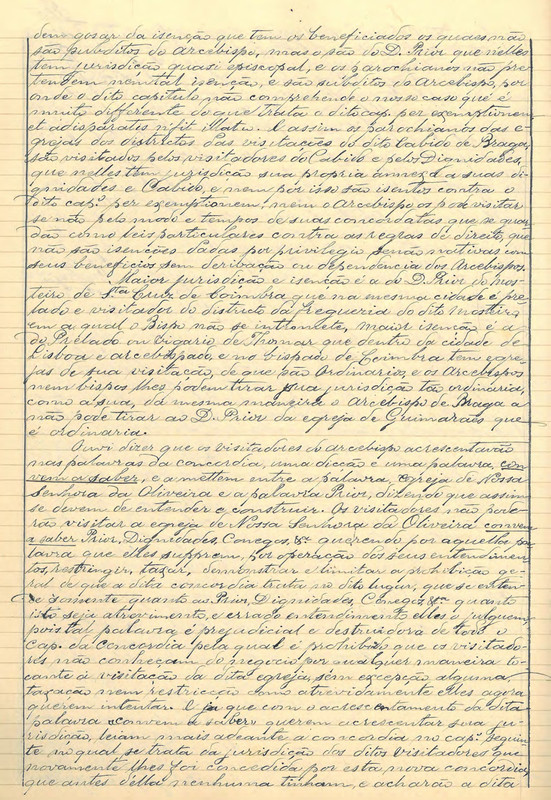 dem gosar da isenção que tem os beneficiados os quaes não
são subditos do arcebispo, mas o são do D. Prior que nelles
tem jurisdição quasi episcopal, e os parochianos não pre
tendem nem tal isenção, e são subditos do Arcebispo, por
onde o dito capitulo não comprehende o nosso caso que é
muito differente do que trata o dito cap. per exemptionem
et a disparatis nifit ilatio. E assim os parochianos das e-
grejas dos districtos das visitações do dito Cabido de Braga,
são visitados pelos visitadores do Cabido e pelas Dignidades,
que nellas têm jurisdição sua propria annexa a suas di-
gnidades e Cabido, e nem por isso são isentos contra o
dito cap. per exemptionem, nem o Arcebispo, os pode visitar
se não pelo modo e tempos de suas concordatas que se guar-
dão como leis particulares contra as regras de direito, que
não são isenções dadas por privilegio senão nativas com
seus beneficios sem derivação ou dependencia dos Arcebispos.
Maior jurisdição e isenção é a do D. Prior do mos-
teiro de Sta Cruz de Coimbra que na mesma cidade é pre-
lado e visitador do districto da freguezia do dito mosteiro,
em a qual o Bispo não se intromete, maior isenção é a
do Prelado ou vigario de Thomar que dentro da cidade de
Lisboa e arcebispado, e no bispado de Coimbra tem egre-
jas de sua visitação, de que são Ordinarios, e os Arcebispos
nem bispos lhes podem tirar sua jurisdição tão ordinaria,
como a sua, da mesma maneira o Arcebispo de Braga a
não pode tirar ao D. Prior da egreja de Guimarães que
é ordinaria.
Ouvi dizer que os visitadores do arcebispo acrescentavão
nas palavras da concordia, uma dicção e uma palavra, con-
vem a saber, e a mettem entre a palavra, egreja de Nossa
Senhora da Oliveira e a palavra Prior, dizendo que assim
se devem de entender e construir. Os visitadores não pode-
rão visitar a egreja de Nossa Senhora da Oliveira convem
a saber Prior, Dignidades, Conegos, &ª querendo por aquella pa-
lavra que elles supprem, por operação dos seus entendimen-
tos, restringir, taxar, demonstrar e limitar a prohibição ge-
ral de que a dita concordia trata no dito lugar, que se enten-
de somente quanto ao Prior, Dignidades, Conegos &ª quanto
isto seja atrevimento, e errado entendimento elles o julguem,
pois tal palavra é prejudicial e destruidora de todo o
cap. da Concordia pela qual é prohibido que os visitado-
res não conheçam do negocio por qualquer maneira to-
cante á visitação da dita egreja, sem excepção alguma,
taxação nem restricção como atrevidamente elles agora
querem intentar. E já que com o acrescentamento da dita
palavra «convem a saber» querem acrescentar sua ju-
risdição, leiam mais adeante a concordia no cap. seguin-
te no qual se trata da jurisdição dos ditos visitadores que
novamente lhes foi concedida por esta nova concordia,
que antes d'ella nenhuma tinham, e acharão a dita